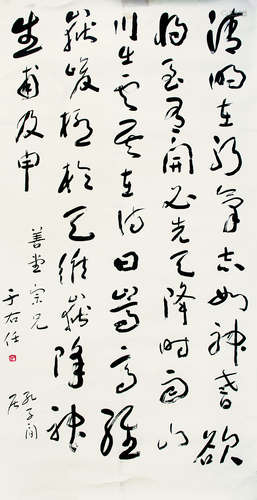 清明在躬氣志如神耆欲
將至有開必先天降時雨山
川出雲其在詩曰嵩高維
嶽峻極於天維嶽降神
生甫及申
孔子閒居
善堂宗兄
于右任